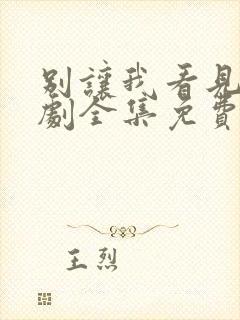 別讓我看見
劇全集免費
王烈